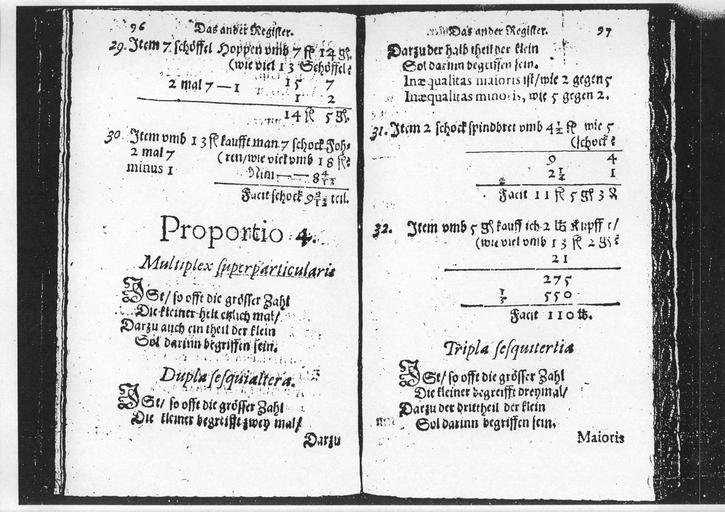 96
Das ander Register.
29. Item 7. schöffel Hoppen vmb 7 fl 14 gl.
(wie viel 13 Schöffel?
2 mal 7 — 1 15 7
1 2
14 fl 5 gl.
30. Item vmb 13 fl kaufft man 7 schock Joh-
2 mal 7 (ren/wie viel vmb 18 fl?
minus 1 Nim — — 8
Facit schock 9 teil.
Proportio 4.
Multiplex superparticularis
ISt/ so offt die grösser Zahl
Die kleiner helt etzlich mal/
Darzu auch ein theil der klein
Sol darinn begriffen sein.
Dupla sesquialtera.
ISt/ so offt die grösser Zahl
Die kleiner begreifft zwey mal/
Darzu
Das ander Register.
97
Darzu der halb theil der klein
Sol darinn begriffen sein.
Inæqualitas maioris ist/wie 2 gegen 5
Inæqualitas minoris, wie 5 gegen 2.
31. Item 2 schock spindbret vmb 4½ fl wie 5
(schock?
9 4
2¼ 1
Facit 11 fl 5 gl 3 ₰
32. Item vmb 5 gl kauff ich 2 lb Kupffer/
(wie viel vmb 13 fl 2 gl?
21
275
⅕ 550
Facit 110 lb.
Tripla sesquitertia
ISt/ so offt die grösser Zahl
Die kleiner begreifft dreymal/
Darzu der drittheil der klein
Sol darinn begriffen sein.
Maioris